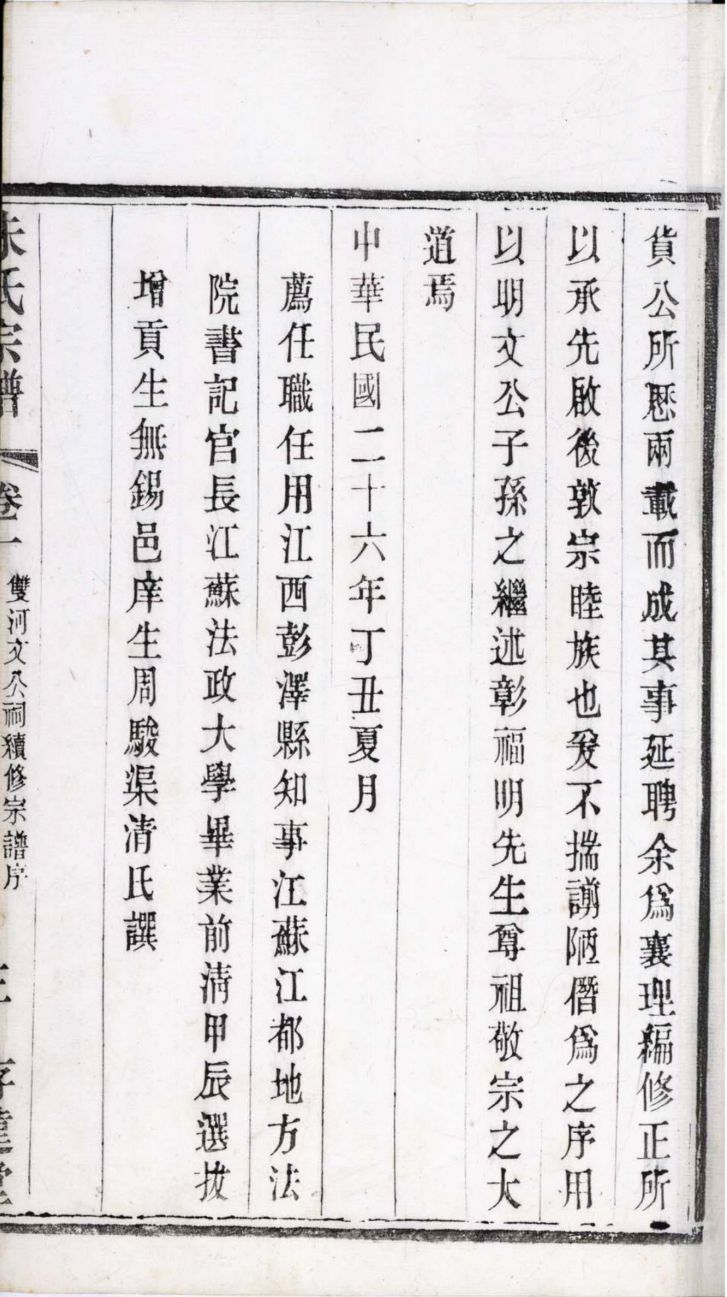 貨公所歷兩載而成其事延聘余爲襄理編修正所
以承先啟後敦宗睦族也爰不揣謭陋僭爲之序用
以明文公子孫之繼述彰福明先生尊祖敬宗之大
道焉
中華民國二十六年丁丑夏月
薦任職任用江西彭澤縣知事江蘇江都地方法
院書記官長江蘇法政大學畢業前清甲辰選拔
增貢生無錫邑庠生周駿渠清氏譔
朱氏宗譜 卷一 雙河文公祠續修宗譜序